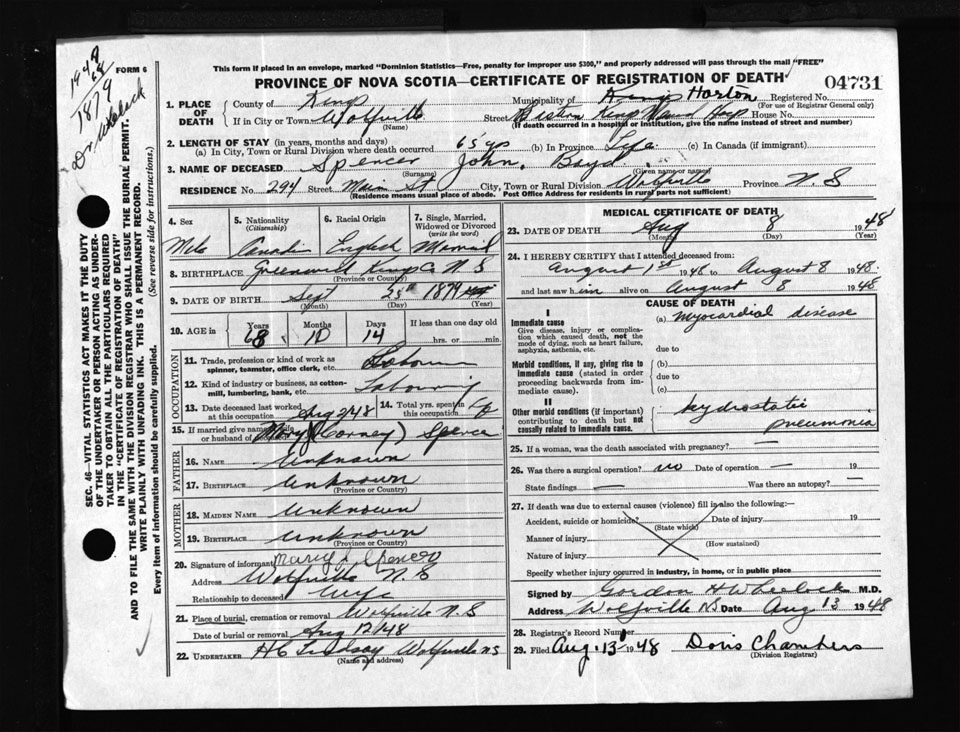 1948
68
1879
Dr. Wheelock
FORM 6
SEC. 46—VITAL STATISTICS ACT MAKES IT THE DUTY
OF THE UNDERTAKER OR PERSON ACTING AS UNDER-
TAKER TO OBTAIN ALL THE PARTICULARS REQUIRED
IN THE "CERTIFICATE OF REGISTRATION OF DEATH"
AND TO FILE THE SAME WITH THE DIVISION REGISTRAR WHO SHALL ISSUE THE BURIAL PERMIT.
WRITE PLAINLY WITH UNFADING INK. THIS IS A PERMANENT RECORD.
Every item of information should be carefully supplied. (See reverse side for instructions.)
This form if placed in an envelope, marked "Dominion Statistics—Free, penalty for improper use $300," and properly addressed will pass through the mail "FREE"
PROVINCE OF NOVA SCOTIA—CERTIFICATE OF REGISTRATION OF DEATH
04731
1. PLACE OF DEATH County of Kings Municipality of Kings Horton Registered No.
(For use of Registrar General only)
If in City or Town Wolfville (Name) Street House No.
(If death occurred in a hospital or institution, give the name instead of street and number)
2. LENGTH OF STAY (in years, months and days)
(a) In City, Town or Rural Division where death occurred 65 yrs (b) In Province Life (c) In Canada (if immigrant)
3. NAME OF DECEASED Spencer John Boyd
(Surname) (Given name or names)
RESIDENCE No. 294 Street Main St City, Town or Rural Division Wolfville Province N.S
(Residence means usual place of abode. Post Office Address for residents in rural parts not sufficient)
4. Sex 5. Nationality (Citizenship) 6. Racial Origin 7. Single, Married, Widowed or Divorced (write the word)
English
8. BIRTHPLACE Kings Co N S
(Province or Country)
9. DATE OF BIRTH Sept 25th 1879
(Month) (Day) (Year)
10. AGE in Years Months Days If less than one day old
68 10 14 hrs. or min.
OCCUPATION
11. Trade, profession or kind of work as spinner, teamster, office clerk, etc.
12. Kind of industry or business, as cotton-mill, lumbering, bank, etc. Labouring
13. Date deceased last worked at this occupation Aug 2/48 14. Total yrs. spent in this occupation
15. If married give name of wife or husband of Mary (Corney) Spencer
FATHER
16. Name Unknown
17. BIRTHPLACE Unknown
(Province or Country)
MOTHER
18. MAIDEN NAME Unknown
19. BIRTHPLACE Unknown
(Province or Country)
20. Signature of informant Mary Spencer
Address Wolfville N.S
Relationship to deceased Wife
21. Place of burial, cremation or removal Wolfville N.S
Date of burial or removal Aug 12/48
22. UNDERTAKER H C Lindsay Wolfville N.S
(Name and address)
MEDICAL CERTIFICATE OF DEATH
23. DATE OF DEATH Aug 8 1948
(Month) (Day) (Year)
24. I HEREBY CERTIFY that I attended deceased from:
August 1st 1948 to August 8 1948
and last saw him alive on August 8 1948
CAUSE OF DEATH
I
Immediate cause (a) Myocardial disease
Give disease, injury or complication which caused death, not the mode of dying, such as heart failure, asphyxia, asthenia, etc.
due to
Morbid conditions, if any, giving rise to immediate cause (stated in order proceeding backwards from immediate cause).
(b)
due to
(c)
II
Other morbid conditions (if important) contributing to death but not causally related to immediate cause.
hydrostatic
pneumonia
25. If a woman, was the death associated with pregnancy? —
26. Was there a surgical operation? no Date of operation — 19
State findings — Was there an autopsy? —
27. If death was due to external causes (violence) fill in also the following:—
Accident, suicide or homicide? (State which) Date of injury 19
Manner of injury (How sustained)
Nature of injury
Specify whether injury occurred in industry, in home, or in public place
Signed by Gordon H Wheelock M.D.
Address Wolfville NS Date Aug 13 1948
28. Registrar's Record Number
29. Filed Aug. 13 1948 Doris Chambers
(Division Registrar)